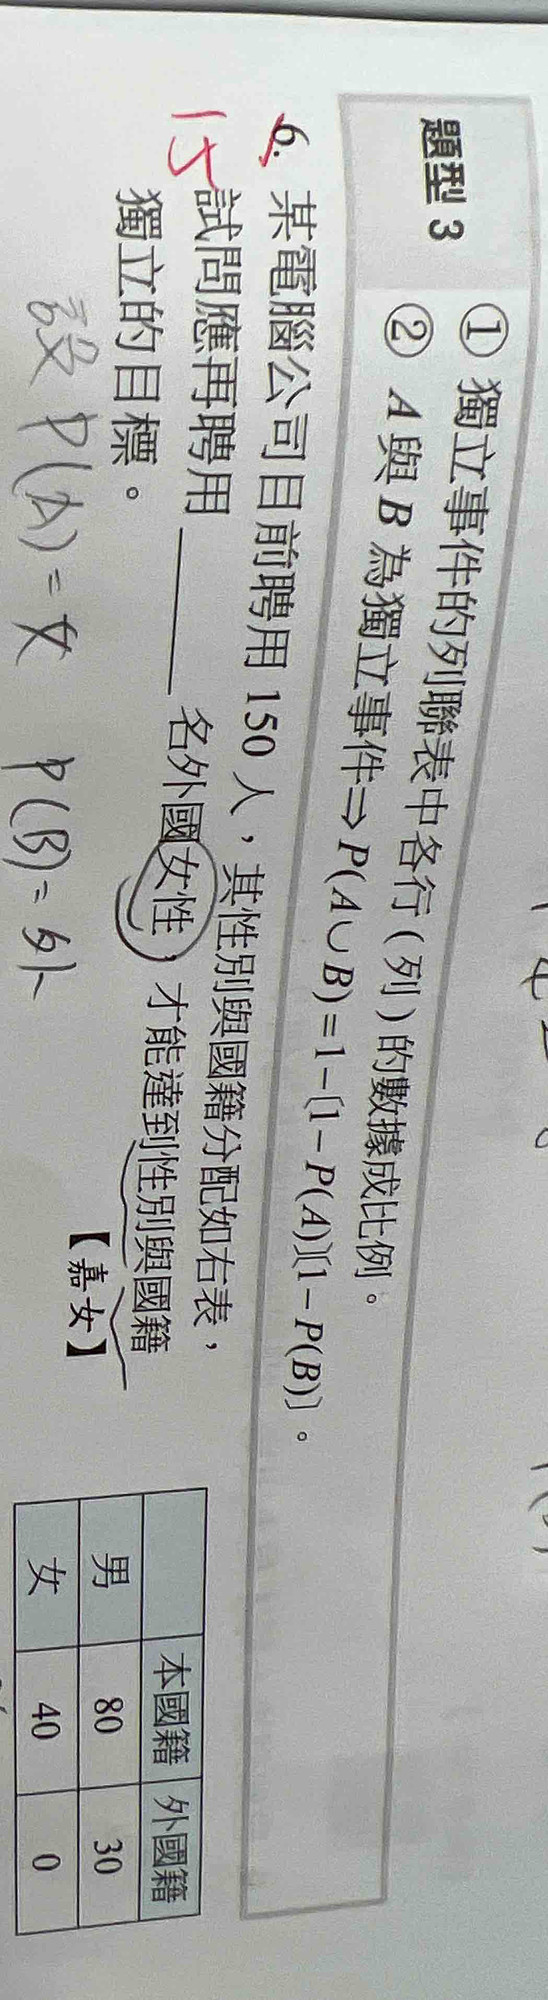 題型 3
① 獨立事件的列聯表中各行(列)的數據成比例。
② A 與 B 為獨立事件⇒P(A∪B)=1-[1-P(A)][1-P(B)]。
6. 某電腦公司目前聘用 150 人,其性別與國籍分配如右表,
15
試問應再聘用______名外國女性,才能達到性別與國籍
獨立的目標。
【嘉女】
本國籍 外國籍
男 80 30
女 40 0
設 P(A)=女 P(B)=外